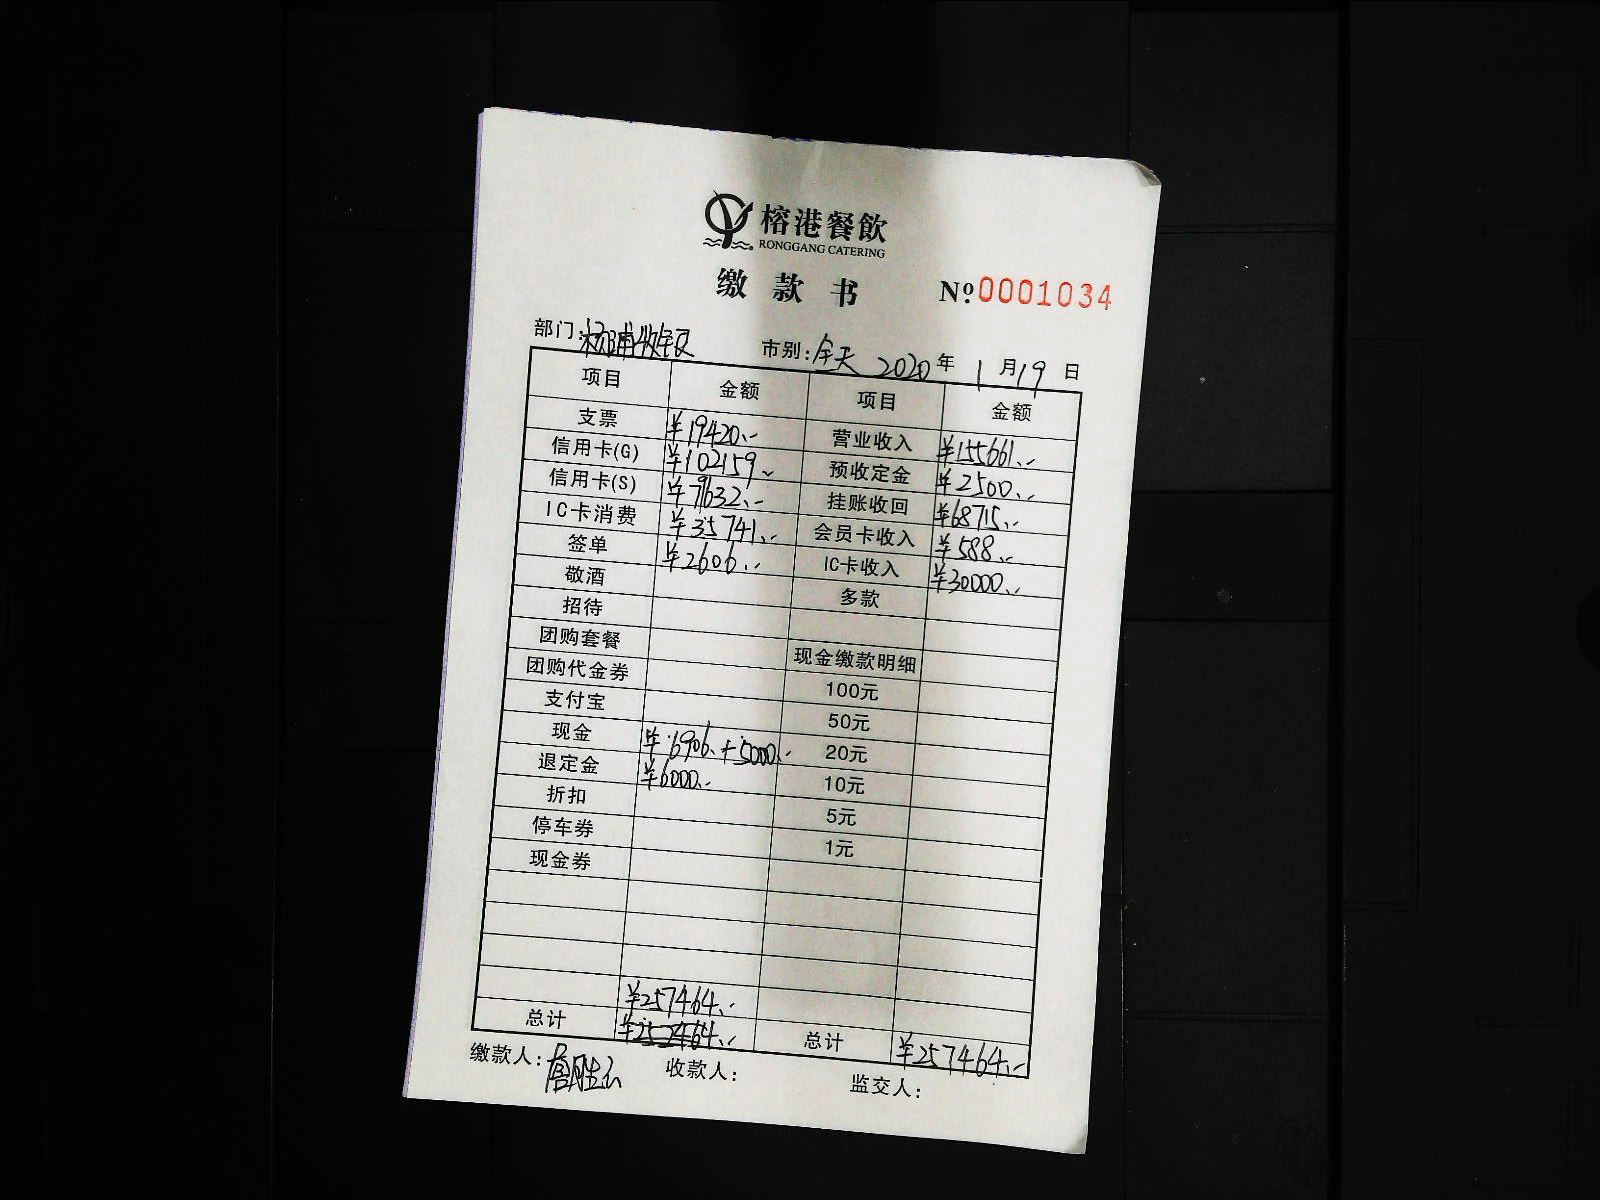 榕港餐飲
RONGGANG CATERING
缴款书 Nº:0001034
部门:杨浦收银 市别:全天 2020年1月19日
项目 金额 项目 金额
支票 ¥19420.- 营业收入 ¥155661.-
信用卡(G) ¥102159.- 预收定金 ¥2500.-
信用卡(S) ¥79632.- 挂账收回 ¥68715.-
IC卡消费 ¥35741.- 会员卡收入 ¥588.-
签单 ¥2606.- IC卡收入 ¥30000.-
敬酒 多款
招待
团购套餐 现金缴款明细
团购代金券 100元
支付宝 50元
现金 ¥6906.+5000.- 20元
退定金 ¥6000.- 10元
折扣 5元
停车券 1元
现金券
¥257464.-
总计 ¥252464.- 总计 ¥257464.-
缴款人: 收款人: 监交人: